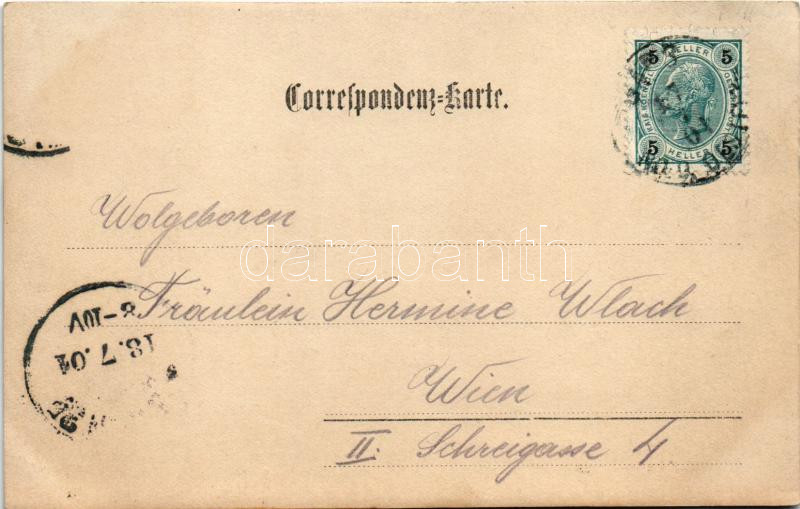 Correspondenz-Karte.
5 HELLER 5
5 HELLER 5
Wolgeboren
darabanth
Fräulein Hermine Wlach
8-10V
18.7.01
Wien
II. Schreigasse 4